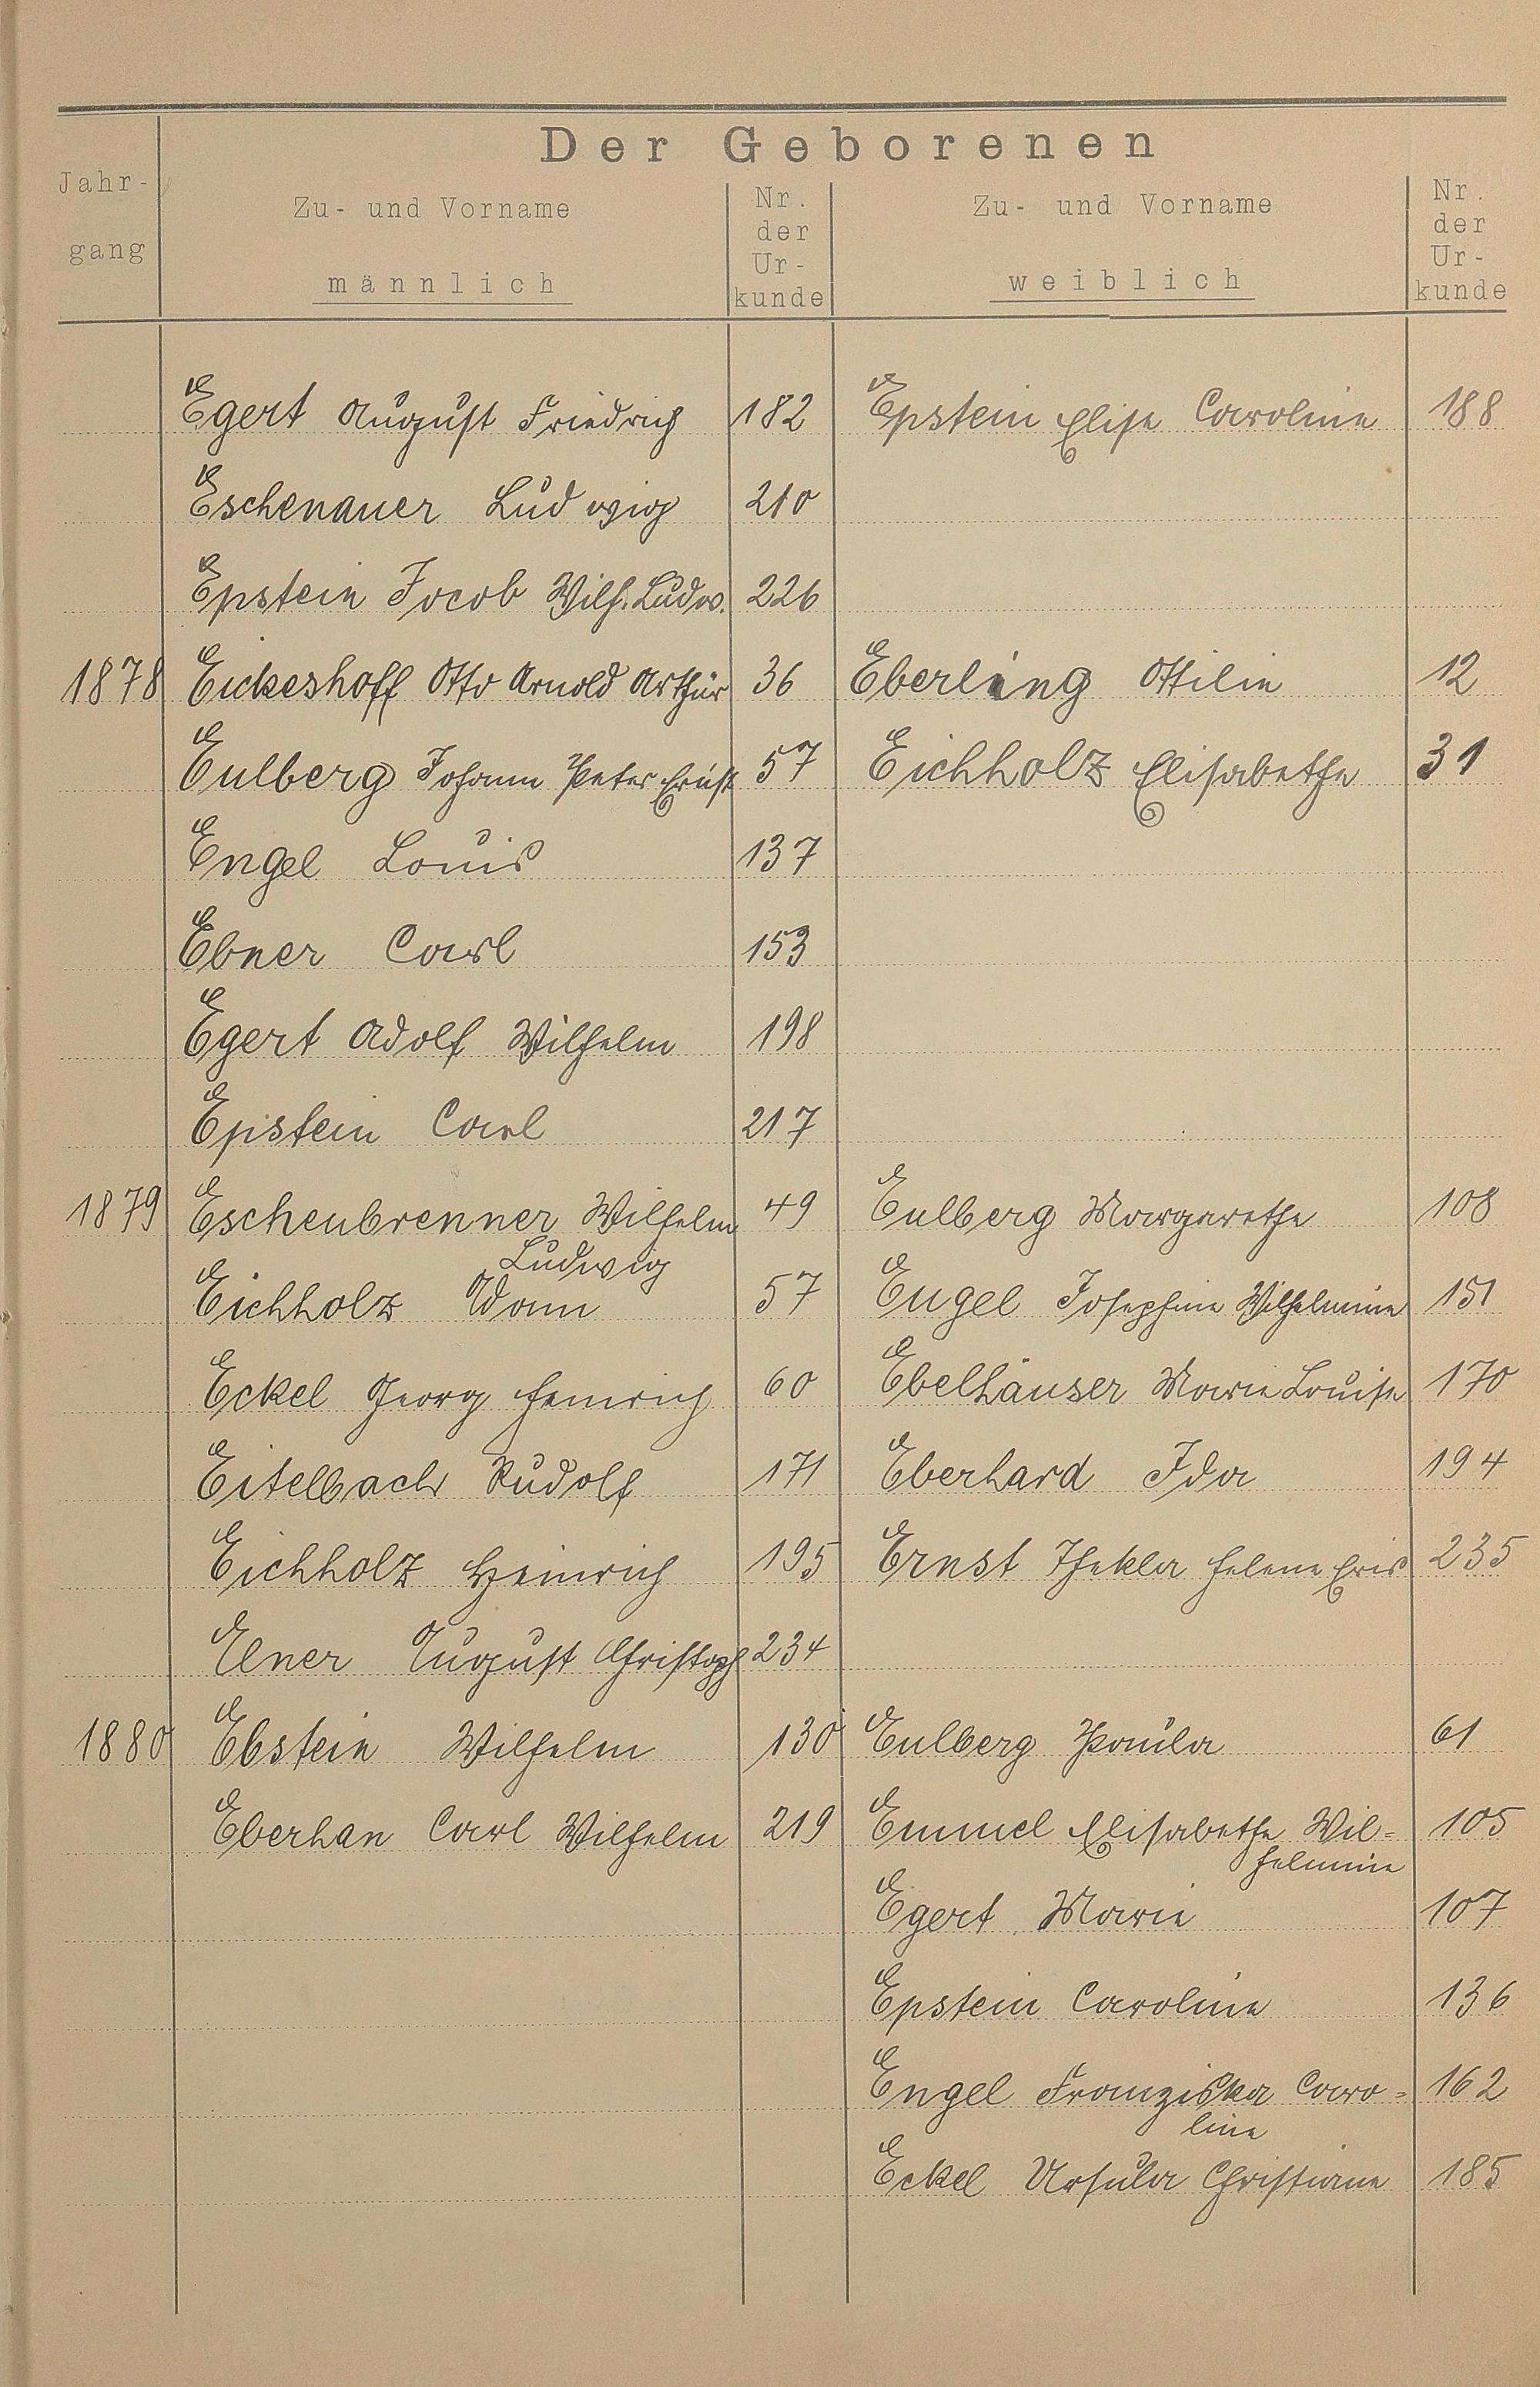 Der Geborenen
Jahr-
gang
Zu- und Vorname
männlich
Nr.
der
Ur-
kunde
Zu- und Vorname
weiblich
Nr.
der
Ur-
kunde
Egert August Friedrich 182 Epstein Elise Caroline 188
Eschenauer Ludwig 210
Epstein Jacob Wilh. Ludw. 226
1878 Eickeshoff Otto Arnold Arthur 36 Eberling Ottilie 12
Eulberg Johann Peter Ernst 57 Eichholz Elisabethe 31
Engel Louis 137
Ebner Carl 153
Egert Adolf Wilhelm 198
Epstein Carl 217
1879 Eschenbrenner Wilhelm 49 Eulberg Margarethe 108
Ludwig
Eichholz Adam 57 Engel Josephine Wilhelmine 151
Eckel Georg Heinrich 60 Ebelhäuser Marie Louise 170
Eitelbach Rudolf 171 Eberhard Ida 194
Eichholz Heinrich 195 Ernst Thekla Helene Eris 235
Elner August Christoph 234
1880 Ebstein Wilhelm 130 Eulberg Paula 61
Eberhan Carl Wilhelm 219 Emmel Elisabethe Wil= 105
helmine
Egert Marie 107
Epstein Caroline 136
Engel Franziska Caro= 162
line
Eckel Ursula Christiane 185